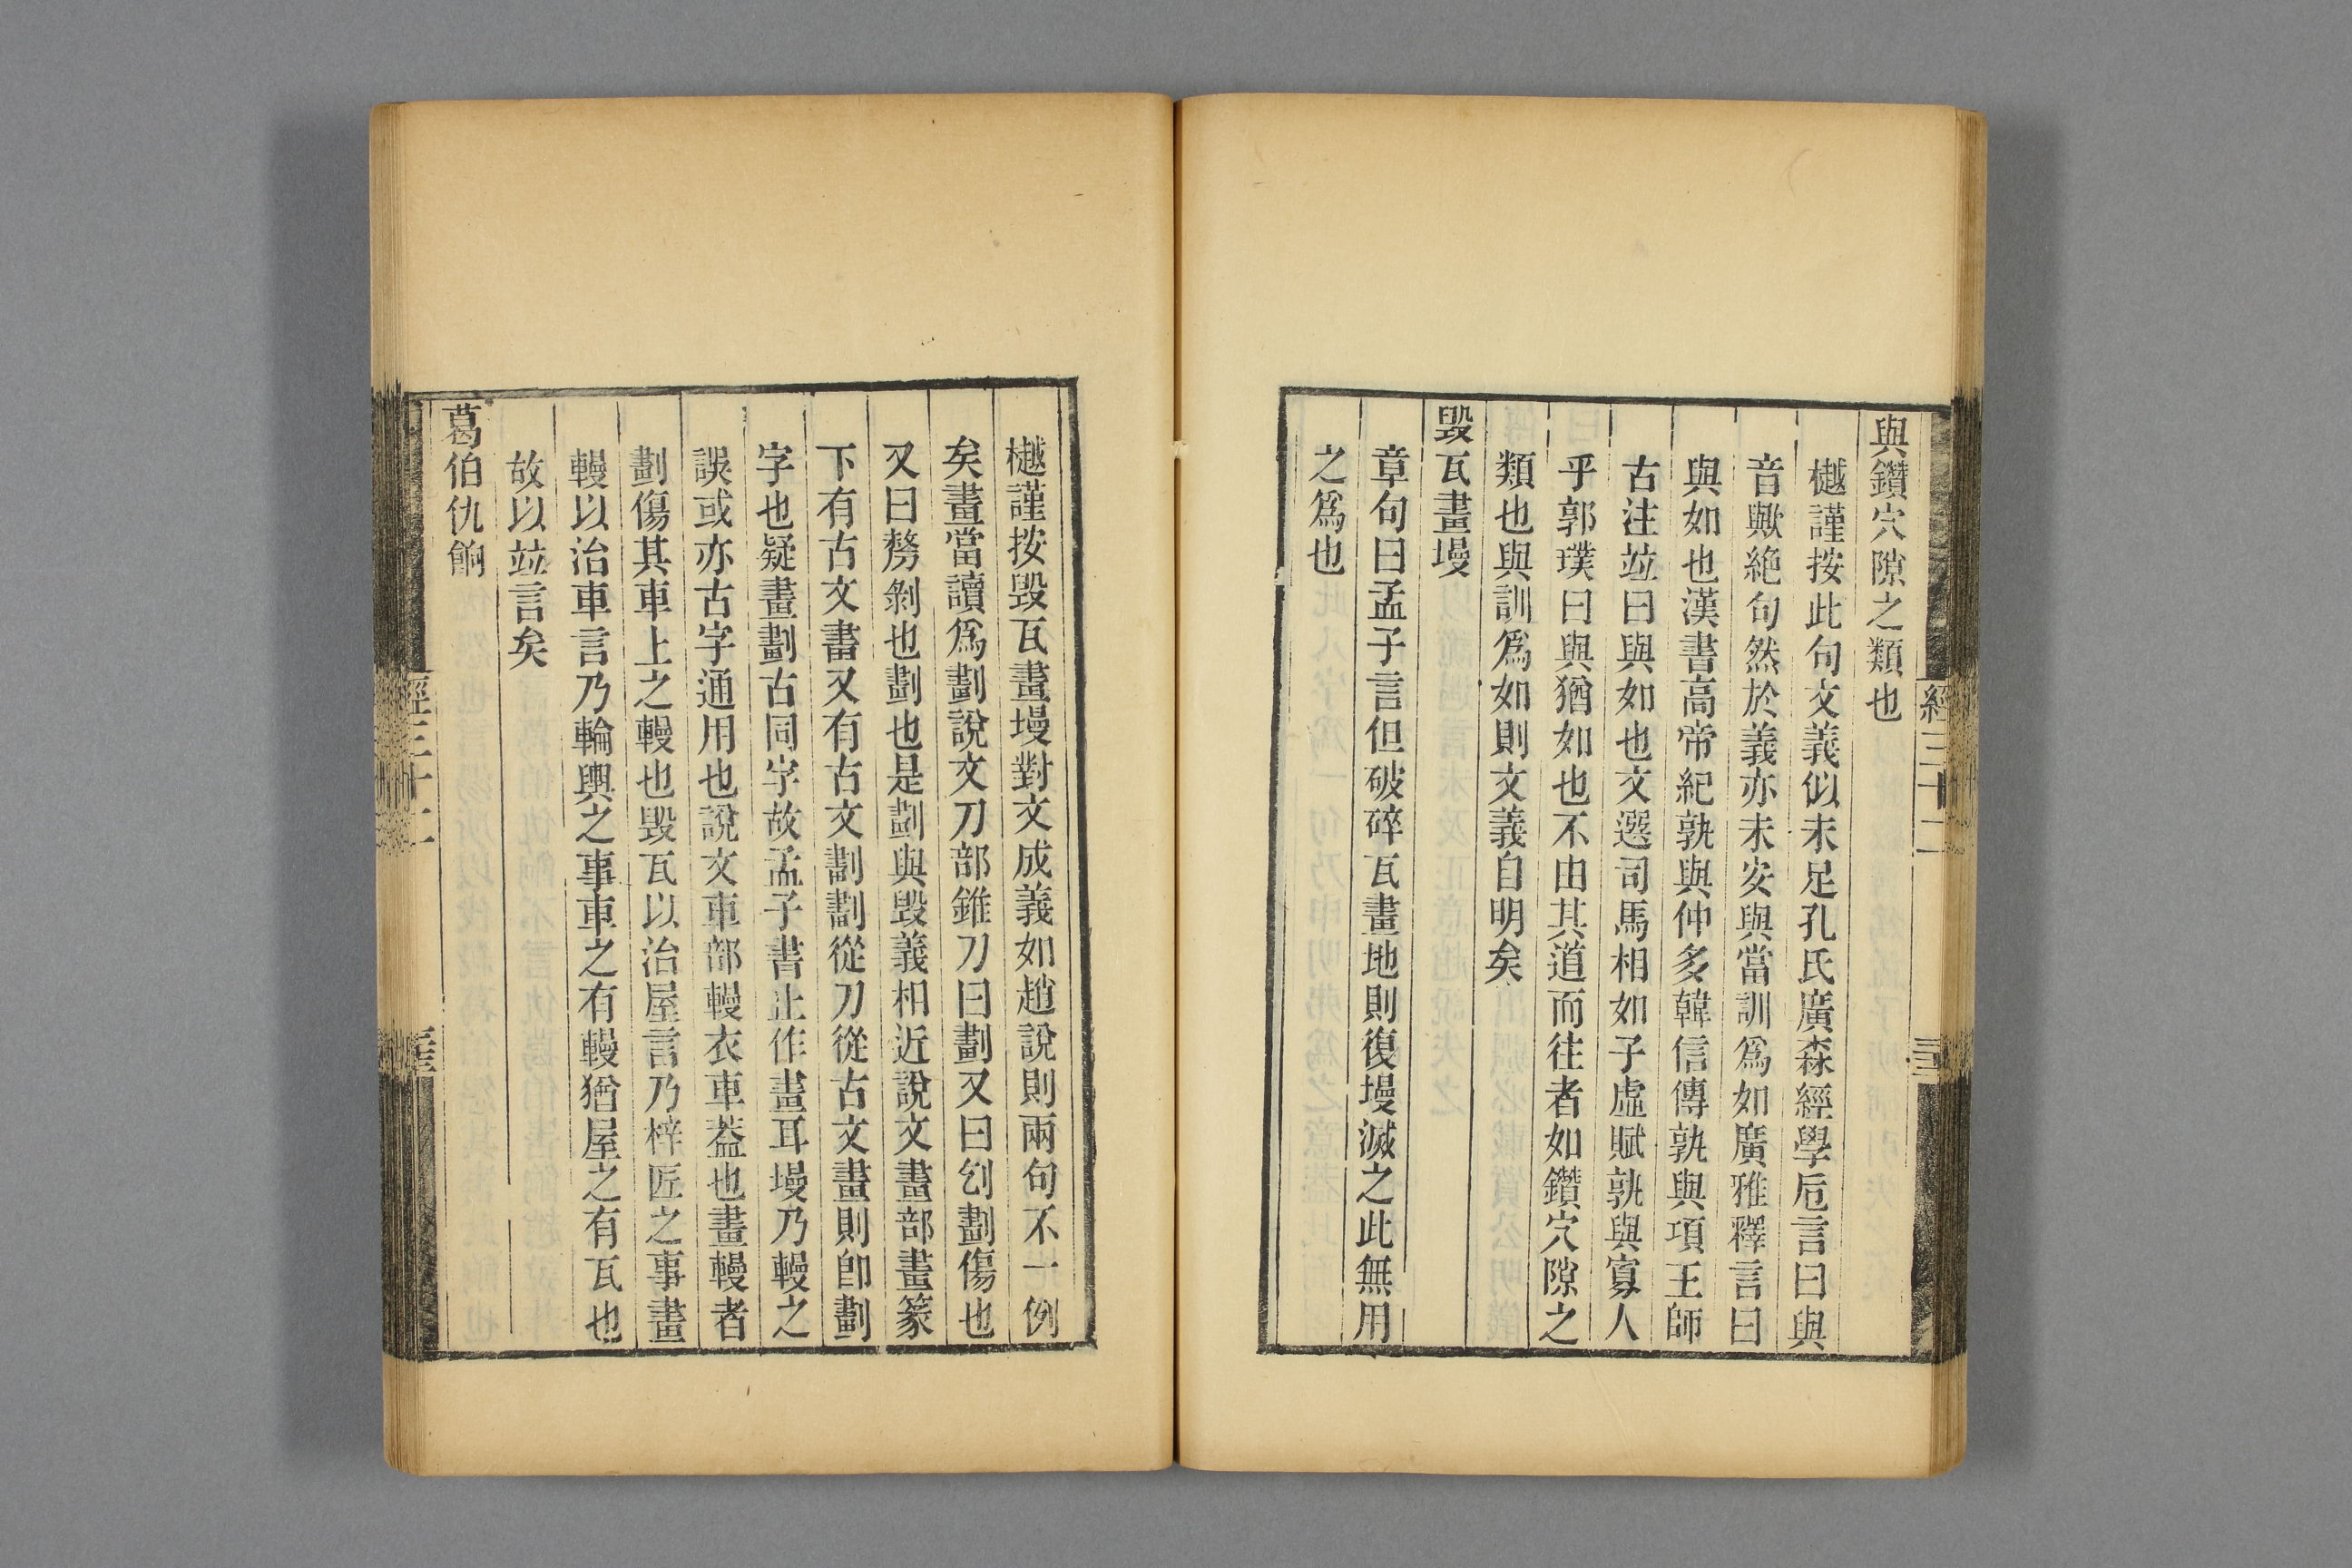 與鑽穴隙之類也
樾謹按此句文義似未足孔氏廣森經學卮言曰與
音歟絶句然於義亦未安與當訓爲如廣雅釋言曰
與如也漢書高帝紀孰與仲多韓信傳孰與項王師
古注竝曰與如也文選司馬相如子虛賦孰與寡人
乎郭璞曰與猶如也不由其道而往者如鑽穴隙之
類也與訓爲如則文義自明矣
毀瓦畫墁
章句曰孟子言但破碎瓦畫地則復墁滅之此無用
之爲也
樾謹按毀瓦畫墁對文成義如趙說則兩句不一例
矣畫當讀爲劃說文刀部錐刀曰劃又曰刉劃傷也
又曰剺剝也劃也是劃與毀義相近說文畫部畫篆
下有古文畵又有古文劃劃從刀從古文畫則卽劃
字也疑畫劃古同字故孟子書止作畫耳墁乃轅之
誤或亦古字通用也說文車部轅衣車葢也畫轅者
劃傷其車上之轅也毀瓦以治屋言乃梓匠之事畫
轅以治車言乃輪輿之事車之有轅猶屋之有瓦也
故以竝言矣
葛伯仇餉
經三十二